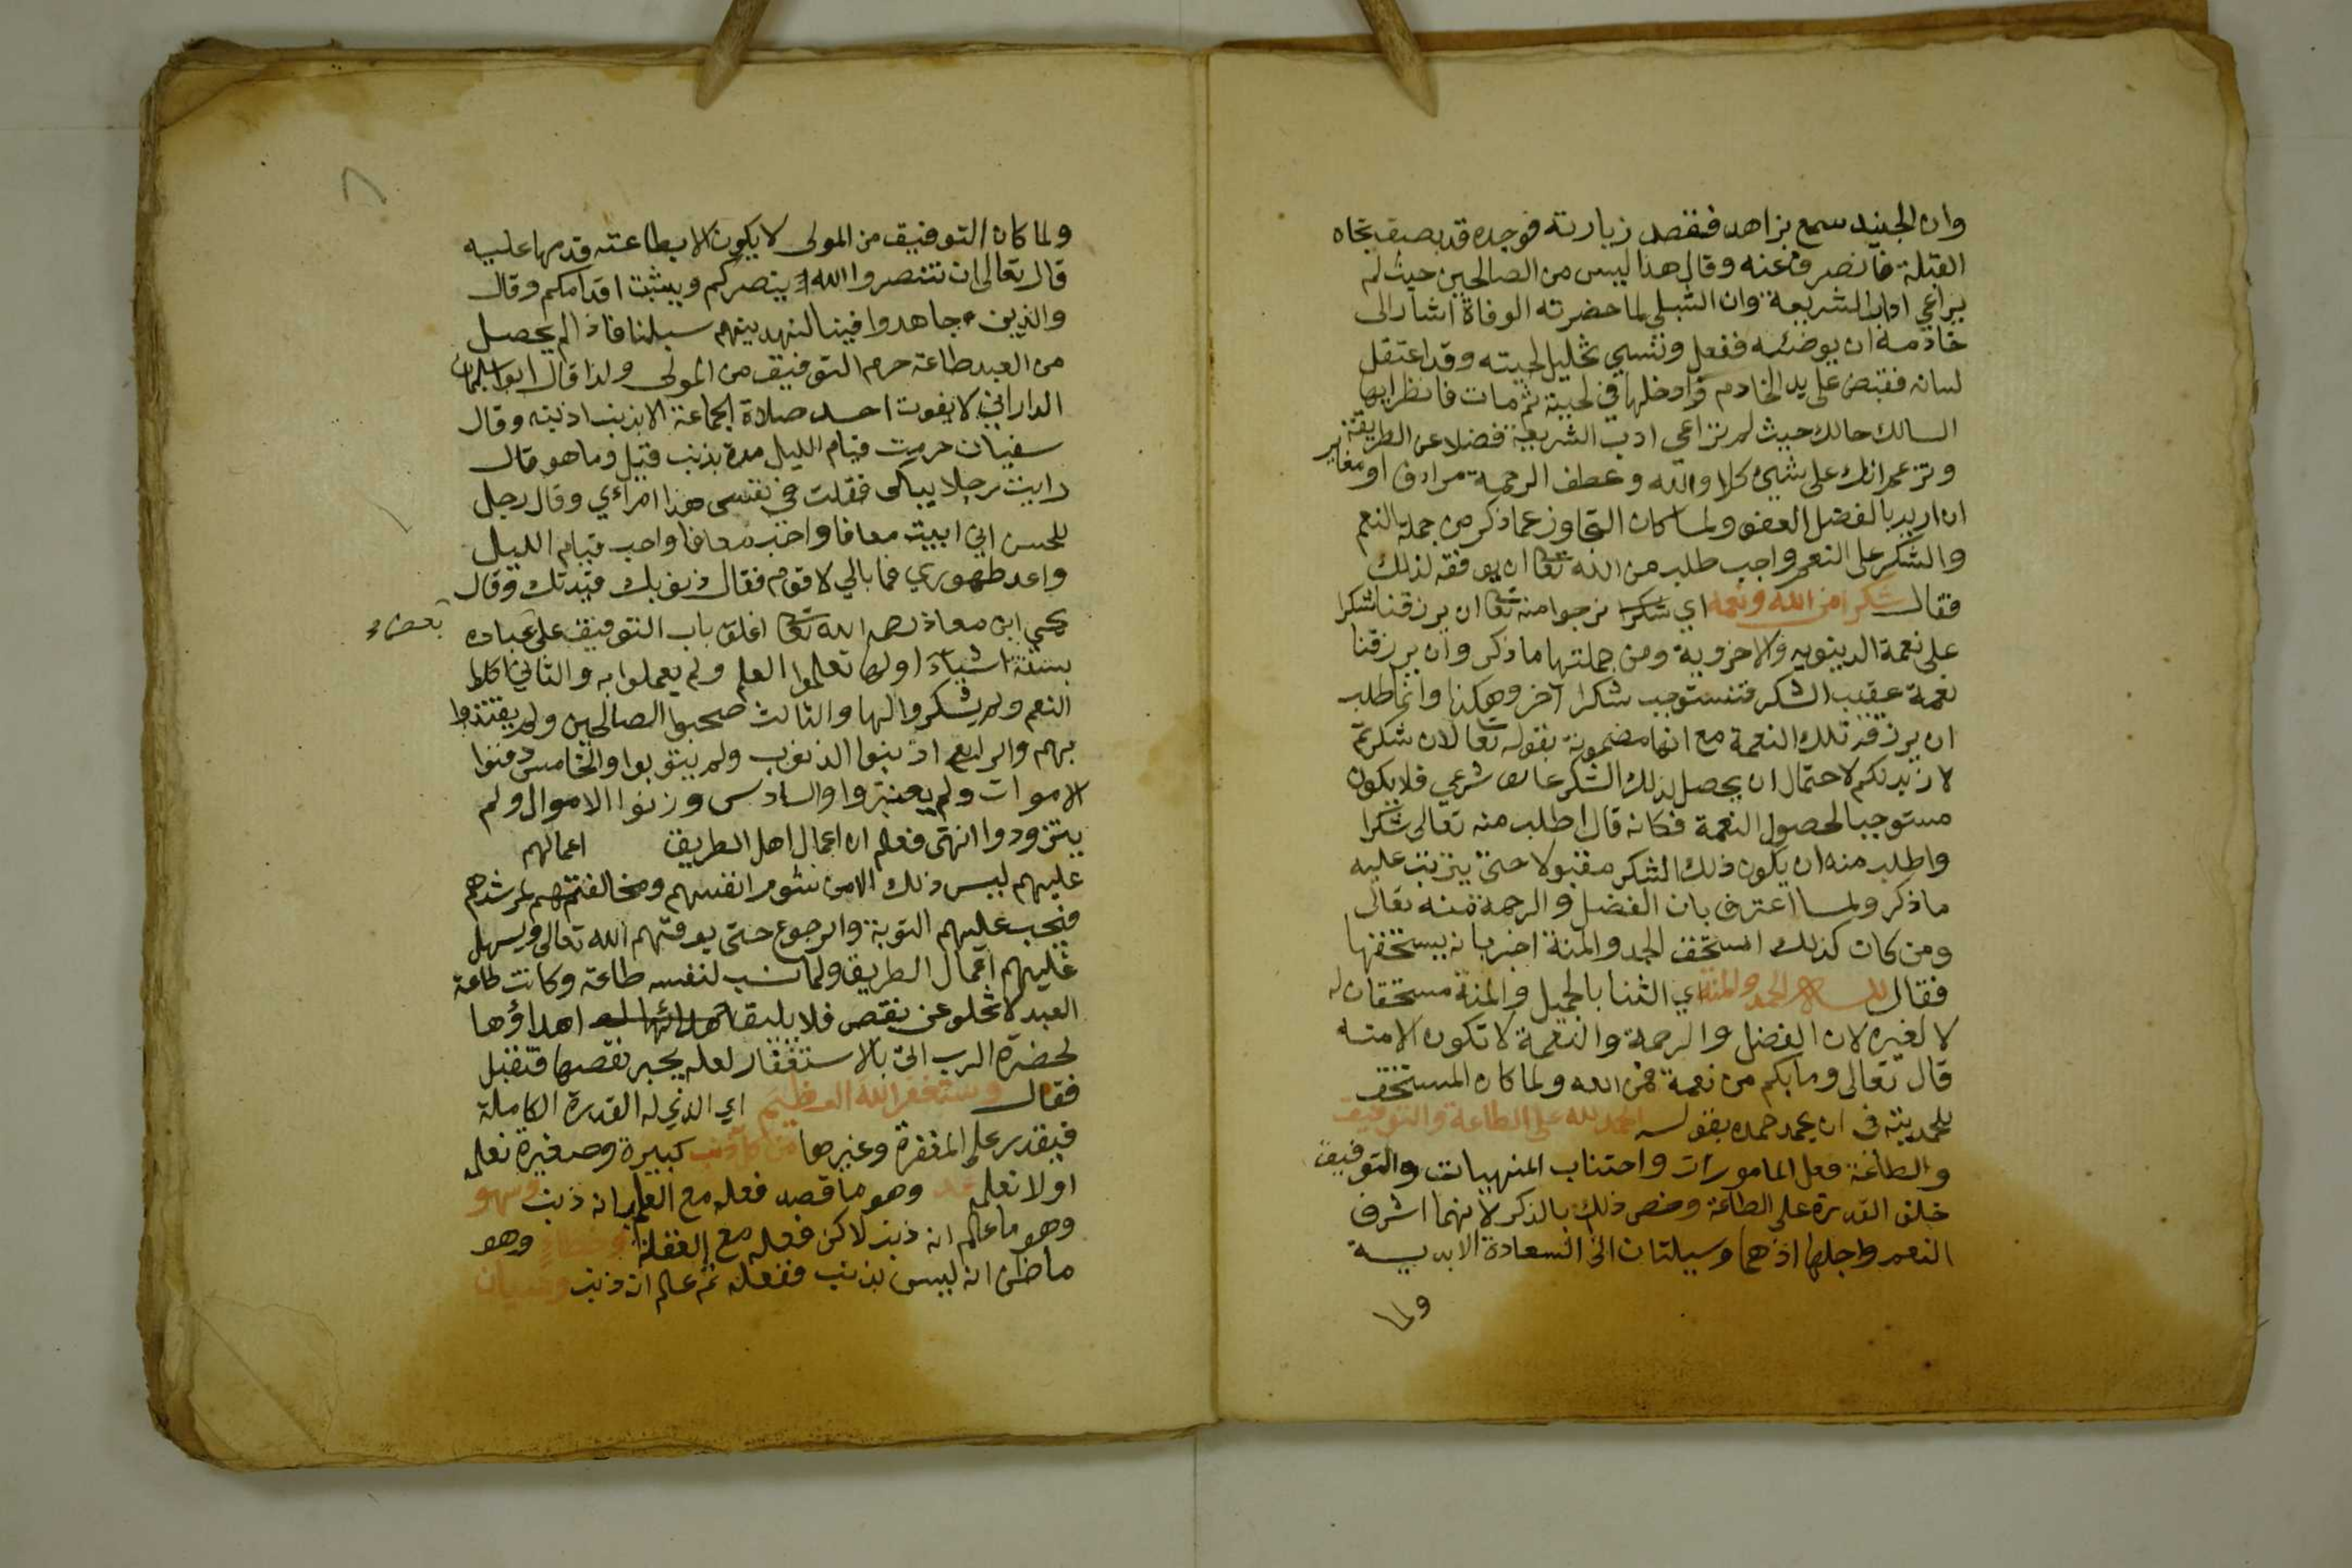 وان الجنيد سمع بزاهد فقصد زيارته فوجده قد بصق تجاه
القبلة فانصرف عنه وقال هذا ليس من الصالحين حيث لم
يراعي اداب الشريعة وان الشبلي لما حضرته الوفاة اشار الى
خادمه ان يوضئه ففعل ونسي تخليل لحيته وقد اعتقل
لسانه فقبض على يد الخادم وادخلها في لحيته ثم مات فانظر ايها
السالك حالك حيث لم تراعي ادب الشريعة فضلا عن الطريقة
وتزعم انك على شيئ كلا والله وعطف الرحمة مرادف او مغاير
ان اريد بالفضل العفو ولما كان التجاوز عما ذكر من جملة النعم
والشكر على النعم واجب طلب من الله تعا ان يوفقه لذلك
فقال شكرا من الله ونعمه اي شكرا نرجوا منه تعا ان يرزقنا شكرا
على نعمة الدينويه والاخروية ومن جملتها ما ذكر وان يرزقنا
نعمة عقب الشكر فتستوجب شكرا آخر وهكذا وانما طلب
ان يرزقه تلك النعمة مع انها مضمونة بقوله تعا لان شكرتم
لازيدنكم لاحتمال ان يحصل لذلك الشكر عارض شرعي فلا يكون
مستوجبا لحصول النعمة فكانه قال اطلب منه تعالى شكرا
واطلب منه ان يكون ذلك الشكر مقبولا حتى يترتب عليه
ما ذكر ولما اعترف بان الفضل والرحمة منه تعالى
ومن كان كذلك استحق الحمد والمنة اخبر بانه يستحقها
فقال لله الحمد والمنة اي الثنا بالجميل والمنة مستحقان له
لا لغيره لان الفضل والرحمة والنعمة لا تكون الا منه
قال تعالى وما بكم من نعمة فمن الله ولما كان المستحق
للحمد ينبغي ان يحمد حمده بقوله الحمد لله على الطاعة والتوفيق
والطاعة فعل المامورات واجتناب المنهيات والتوفيق
خلق القدرة على الطاعة وخص ذلك بالذكر لانهما اشرف
النعم واجلها اذ هما وسيلتان الى السعادة الابدية
ولما
ولما كان التوفيق من المولى لا يكون الا بطاعته قدمها عليه
قال تعالى ان تنصروا الله ينصركم ويثبت اقدامكم وقال
والذين جاهدوا فينا لنهدينهم سبلنا فاذا لم يحصل
من العبد طاعة حرم التوفيق من المولى ولذا قال ابو سليمان
الداراني لا يفوت احد صلاة الجماعة الا بذنب اذنبه وقال
سفيان حرمت قيام الليل مدة بذنب قيل وما هو قال
رايت رجلا يباكى فقلت في نفسى هذا امراءي وقال رجل
للحسن اني ابيت معافا واحب قيام الليل
واعد طهوري فما بالي لا اقوم فقال ذنوبك قيدتك وقال
يحيى ابن معاذ رحمه الله تعا اغلق باب التوفيق على عباده
بعض
بستة اشياء اولها تعلموا العلم ولم يعملوا به والثاني اكلوا
النعم ولم يشكروا لها والثالث صحبوا الصالحين ولم يقتدوا
بهم والرابع اذنبوا الذنوب ولم يتوبوا والخامس دفنوا
الاموات ولم يعتبروا والسادس ورثوا الاموال ولم
يتزودوا انتهى فعلم ان اعمال اهل الطريق اعمالهم
عليهم ليس ذلك الا من شوم انفسهم ومخالفتهم لمرشدهم
فيجب عليهم التوبة والرجوع حتى يوفقهم الله تعالى ويسهل
عليهم اعمال الطريق ولما نسب لنفسه طاعة وكانت طاعة
العبد لا تخلو عن نقص فلا يليق اهداؤها
لحضرة الرب اتى بالاستغفار لعله يجبر نقصها فتقبل
فقال ونستغفر الله العظيم اي الذي له القدرة الكاملة
فيقدر على المغفرة وغيرها من كل ذنب كبيرة وصغيرة نعلمه
او لا نعلمه عمد وهو ما قصد فعله مع العلم بانه ذنب وسهو
وهو ما علم انه ذنب لاكن فعله مع الغفلة وخطاء وهو
ما ظن انه ليس بذنب ففعله ثم علم انه ذنب ونسيان